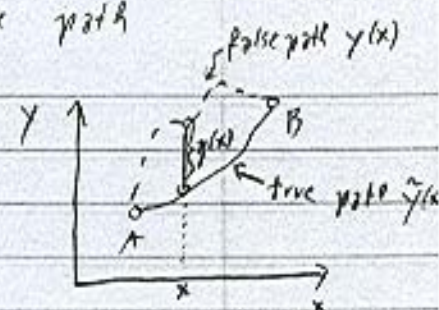 path
false path y(x)
Y
B
true path ỹ(x
A
x
x